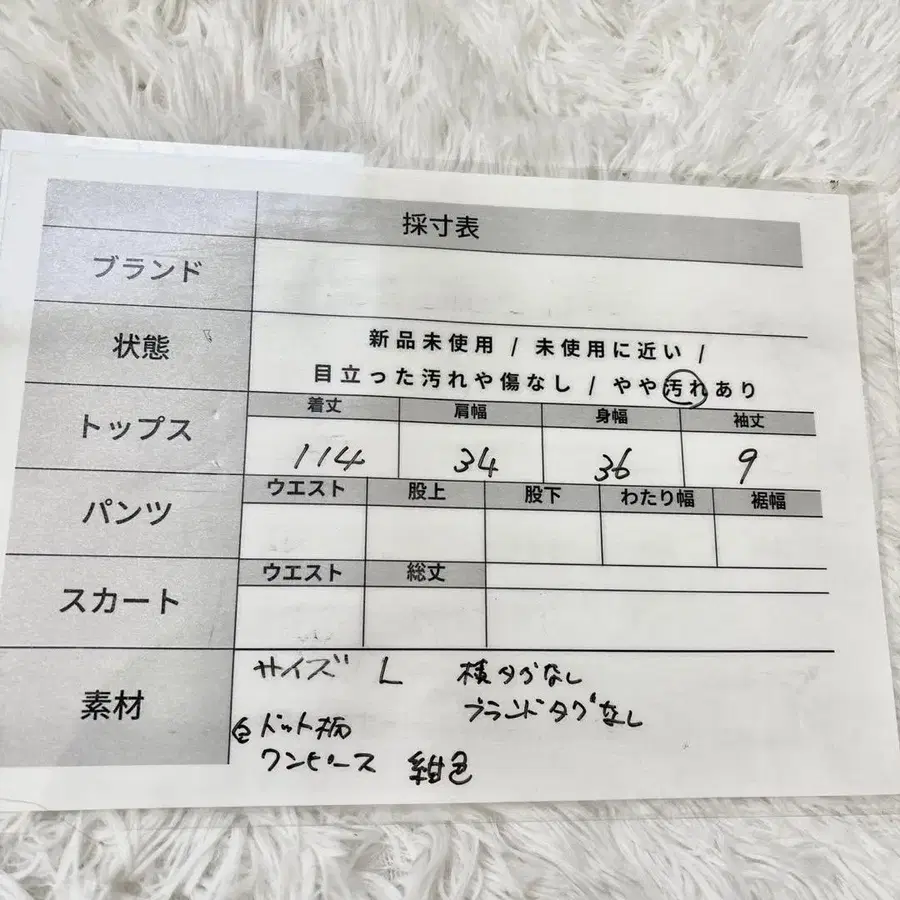 採寸表
ブランド
状態
新品未使用 / 未使用に近い /
目立った汚れや傷なし / やや汚れあり
トップス
着丈 肩幅 身幅 袖丈
114 34 36 9
パンツ
ウエスト 股上 股下 わたり幅 裾幅
スカート
ウエスト 総丈
素材
サイズ L 横タグなし
ブランドタグなし
ドット柄
ワンピース 紺色